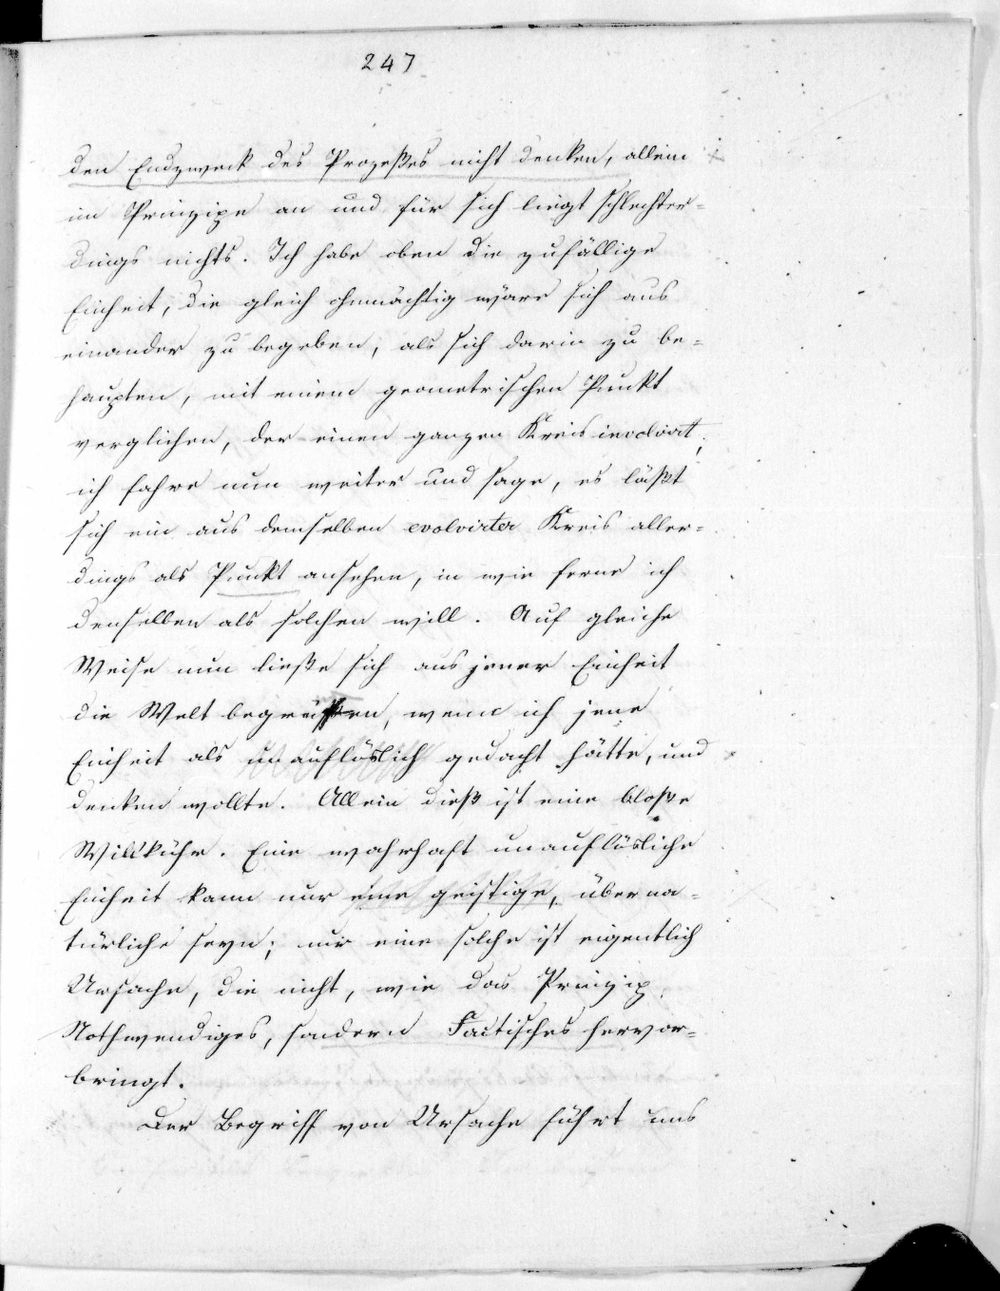 247
den Endzweck des Prozeßes nicht denken, allein
im Prinzipe an und für sich liegt schlechter=
dings nichts. Ich habe oben die zufällige
Einheit, die gleich ohnmächtig wäre sich aus
einander zu begeben, als sich darin zu be=
haupten, mit einem geometrischen Punkt
verglichen, der einen ganzen Kreis involvirt,
ich fahre nun weiter und sage, es läßt
sich ein aus demselben evolvirter Kreis aller=
dings als Punkt ansehen, in wie ferne ich
denselben als solchen will. Auf gleiche
Weise nun ließe sich aus jener Einheit
die Welt begreifen, wenn ich jene
Einheit als unauflöslich gedacht hätte, und
denken wollte. Allein dieß ist eine bloße
Willkühr. Eine wahrhaft unauflösliche
Einheit kann nur eine geistige, überna=
türliche seyn; nur eine solche ist eigentlich
Ursache, die nicht, wie das Prinzip,
Nothwendiges, sondern Factisches hervor=
bringt.
Der Begriff von Ursache führt uns